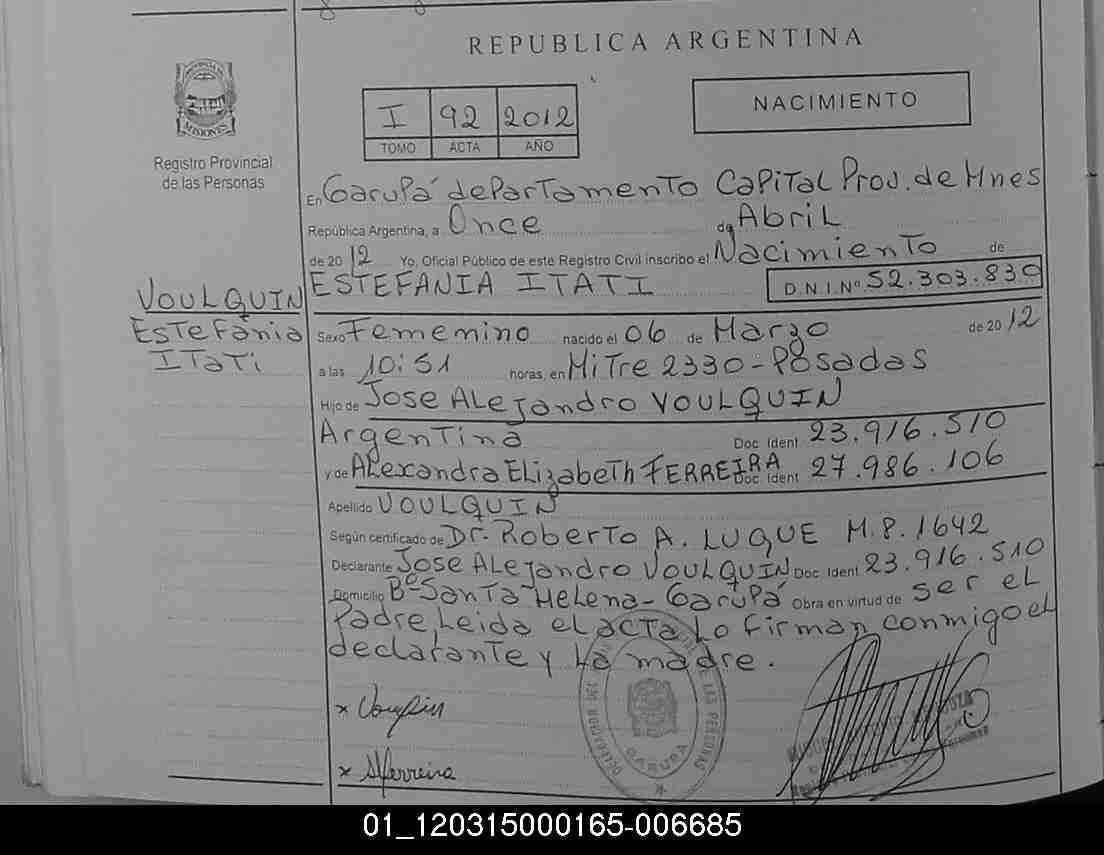 REPUBLICA ARGENTINA
PROVINCIA DE
MISIONES
Registro Provincial
de las Personas
I 92 2012
TOMO ACTA AÑO
NACIMIENTO
En Garupá departamento Capital Prov. de Mnes
República Argentina, a Once de Abril
de 2012 Yo, Oficial Público de este Registro Civil inscribo el Nacimiento de
ESTEFANIA ITATI D.N.I.Nº 52.303.830
VOULQUIN
Estefania
ITati
Sexo Femenino nacido el 06 de Marzo de 2012
a las 10:51 horas, en Mitre 2330-Posadas
Hijo de Jose Alejandro VOULQUIN
Argentina Doc Ident 23.916.510
y de Alexandra Elizabeth FERREIRA Doc Ident 27.986.106
Apellido VOULQUIN
Según certificado de Dr. Roberto A. LUQUE M.P. 1642
Declarante Jose Alejandro VOULQUIN Doc Ident 23.916.510
Domicilio Bº Santa Helena - Garupá Obra en virtud de ser el
Padre, Leida el acta Lo firman conmigo el
declarante y La madre.
x
x AFerreira
GARUPA
01_120315000165-006685